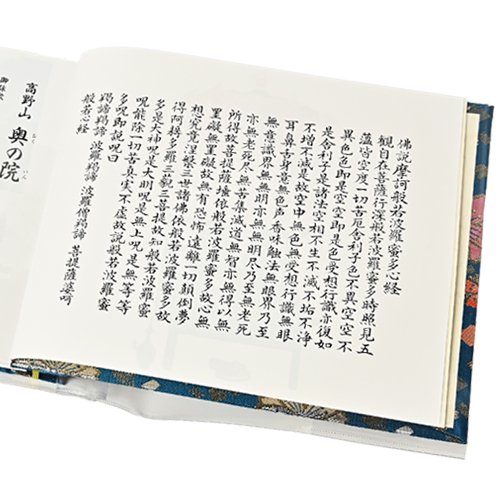 佛説摩訶般若波羅蜜多心経
観自在菩薩行深般若波羅蜜多時照見五
蘊皆空度一切苦厄舎利子色不異空空不
異色色即是空空即是色受想行識亦復如
是舎利子是諸法空相不生不滅不垢不浄
不増不減是故空中無色無受想行識無眼
耳鼻舌身意無色声香味触法無眼界乃至
無意識界無無明亦無無明尽乃至無老死
亦無老死尽無苦集滅道無智亦無得以無
所得故菩提薩埵依般若波羅蜜多故心無
罣礙無罣礙故無有恐怖遠離一切顛倒夢
想究竟涅槃三世諸佛依般若波羅蜜多故
得阿耨多羅三藐三菩提故知般若波羅蜜
多是大神呪是大明呪是無上呪是無等等
呪能除一切苦真実不虚故説般若波羅蜜
多呪即説呪曰
羯諦羯諦 波羅羯諦 波羅僧羯諦 菩提薩婆訶
般若心経
高野山 奥の院